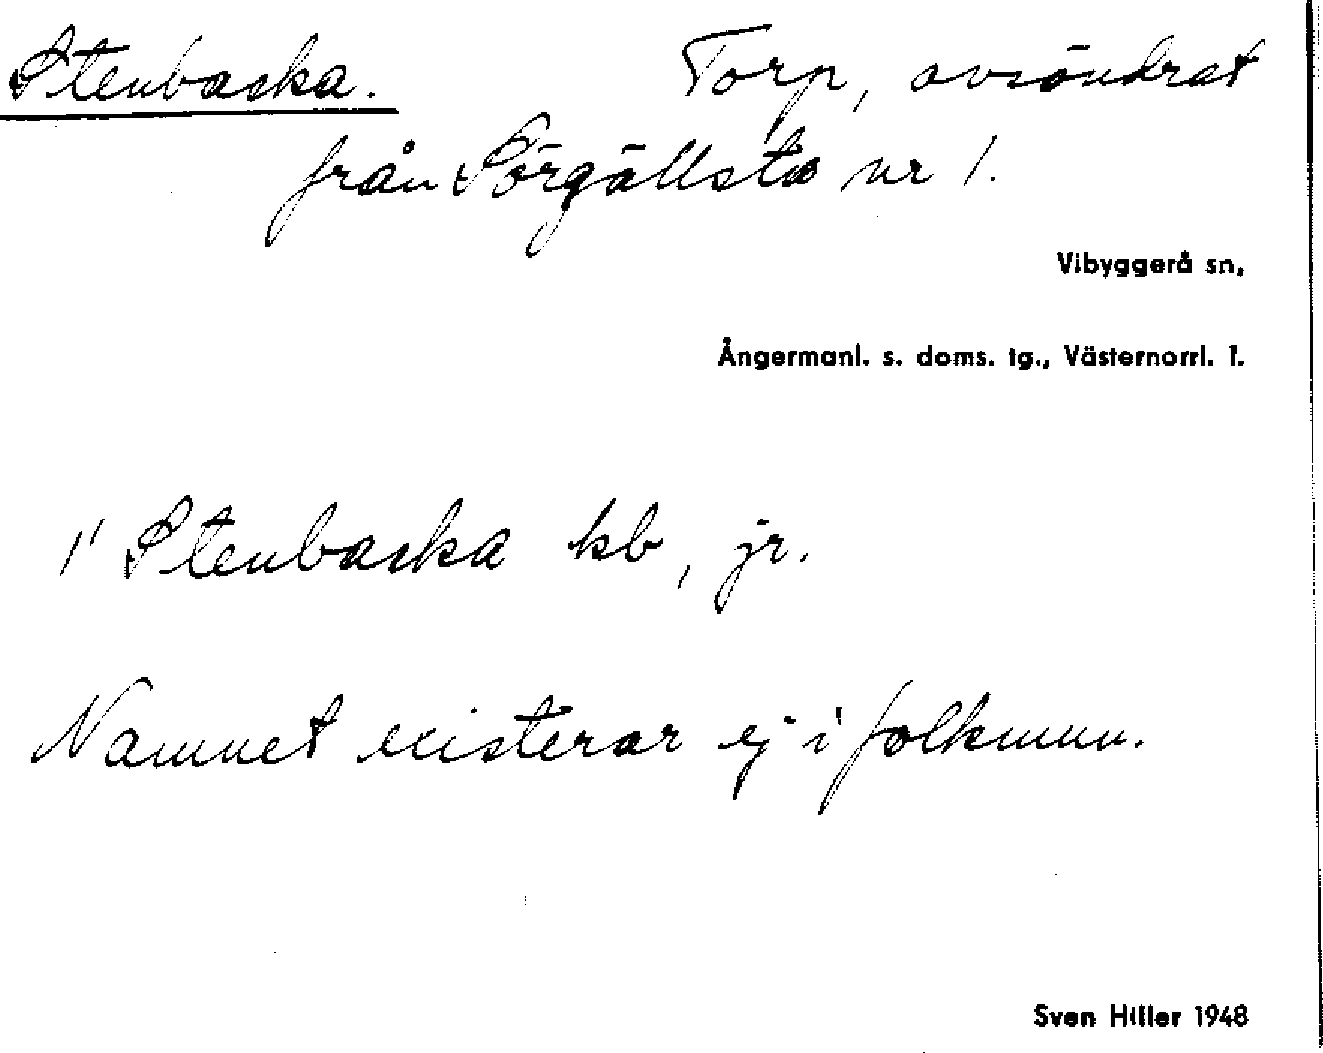 Stenbacka. Torp, avsöndrat
från Sörgällsta nr 1.
Vibyggerå sn,
Ångermanl. s. doms. tg., Västernorrl. l.
1' Stenbacka kb, jr.
Namnet existerar ej i folkmun.
Sven Hiller 1948